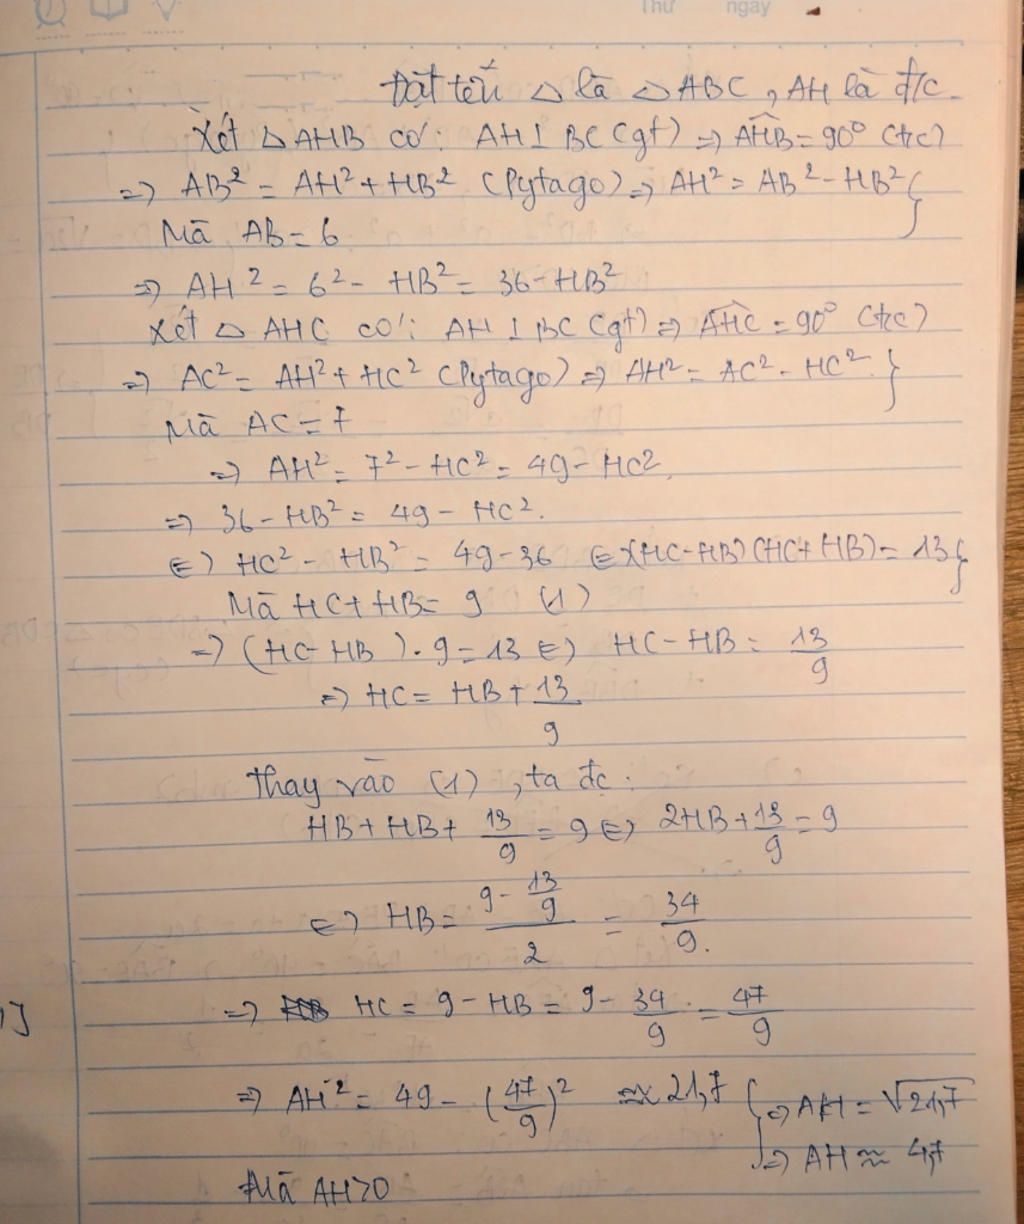 Thứ ngày
Đặt tên △ là △ABC, AH là đ/c
Xét △AHB có: AH⊥BC (gt) => AHB = 90° (t/c)
=> AB² = AH² + HB² (Pytago) => AH² = AB² - HB² }
Mà AB = 6
=> AH² = 6² - HB² = 36 - HB²
Xét △ AHC có: AH ⊥ BC (gt) => AHC = 90° (t/c)
=> AC² = AH² + HC² (Pytago) => AH² = AC² - HC² }
Mà AC = 7
=> AH² = 7² - HC² = 49 - HC²
=> 36 - HB² = 49 - HC².
<=> HC² - HB² = 49 - 36 <=> (HC-HB)(HC+HB) = 13 }
Mà HC + HB = 9 (1)
=> (HC - HB).9 = 13 <=> HC - HB = 13/9
=> HC = HB + 13/9
Thay vào (1), ta đc:
HB + HB + 13/9 = 9 <=> 2HB + 13/9 = 9
<=> HB = (9 - 13/9)/2 = 34/9.
=> HC = 9 - HB = 9 - 34/9 = 47/9
=> AH² = 49 - (47/9)² ≈ 21,7 { => AH = √21,7
=> AH ≈ 4,7
Mà AH>0